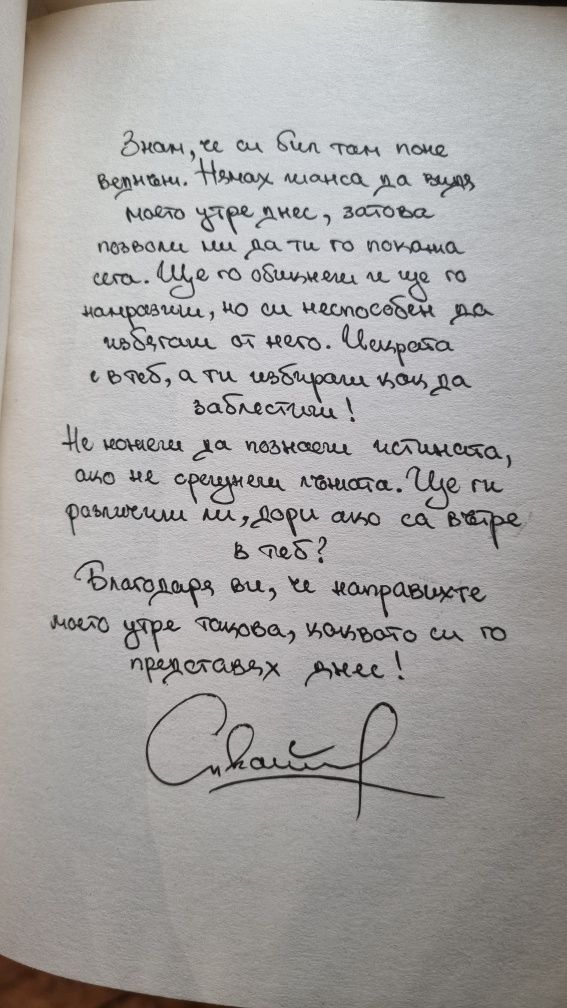 Знам, че си бил там поне
веднъж. Нямах шанса да видя
моето утре днес, затова
позволи ми да ти го покажа
сега. Ще го обикнеш и ще го
намразиш, но си неспособен да
избягаш от него. Искрата
е в теб, а ти избираш как да
заблестиш!
Не можеш да познаеш истината,
ако не срещнеш лъжата. Ще ги
различиш ли, дори ако са вътре
в теб?
Благодаря ви, че направихте
моето утре такова, каквото си го
представях днес!